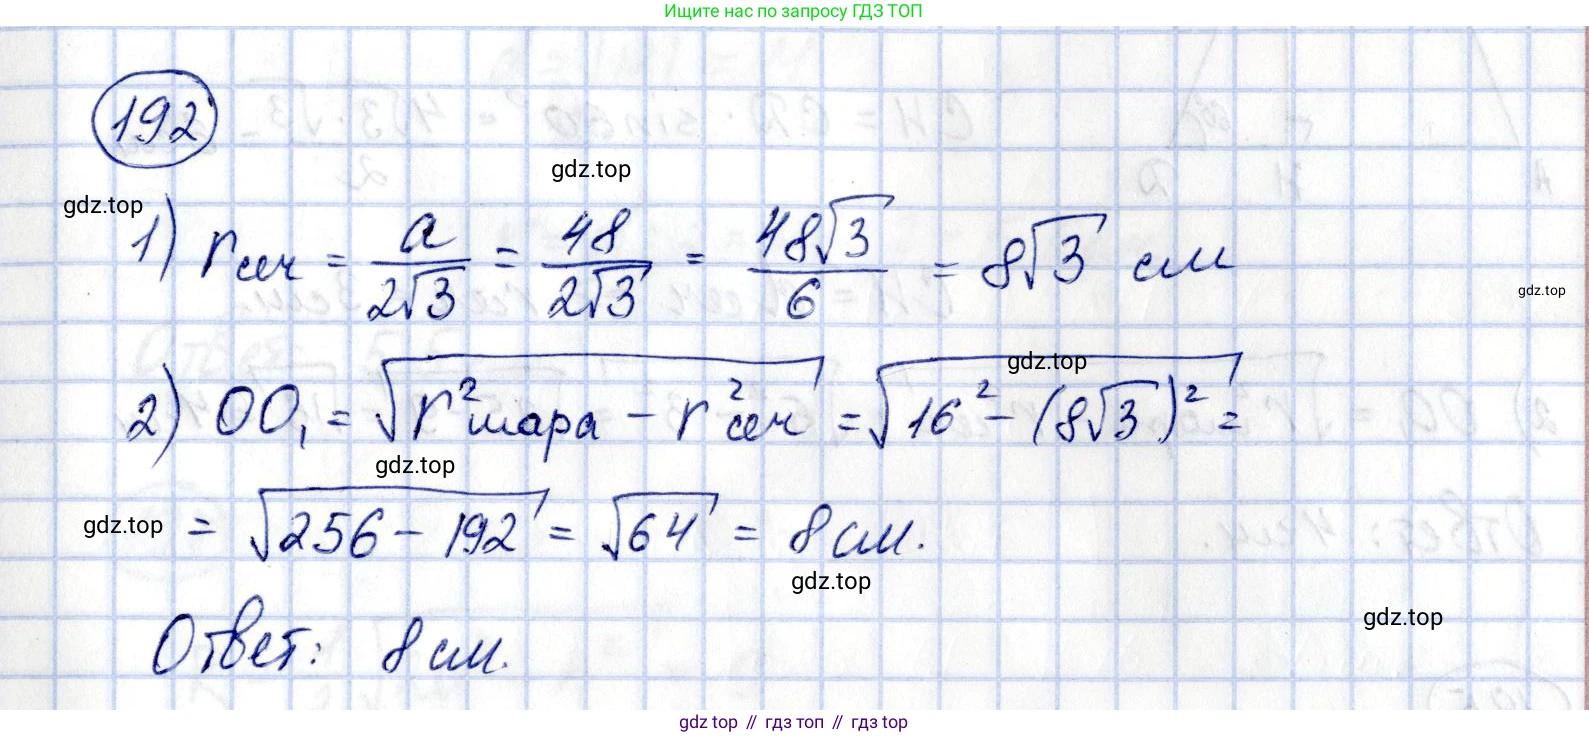 Ищите нас по запросу ГДЗ ТОП
192
gdz.top
gdz.top
1) rсеч = a/(2√3) = 48/(2√3) = 48√3/6 = 8√3 см
gdz.top
gdz.top
2) OO₁ = √(r²шара − r²сеч) = √(16² − (8√3)²) =
gdz.top
gdz.top
= √(256 − 192) = √64 = 8 см.
gdz.top
gdz.top
Ответ: 8 см.
gdz top // гдз топ // гдз top